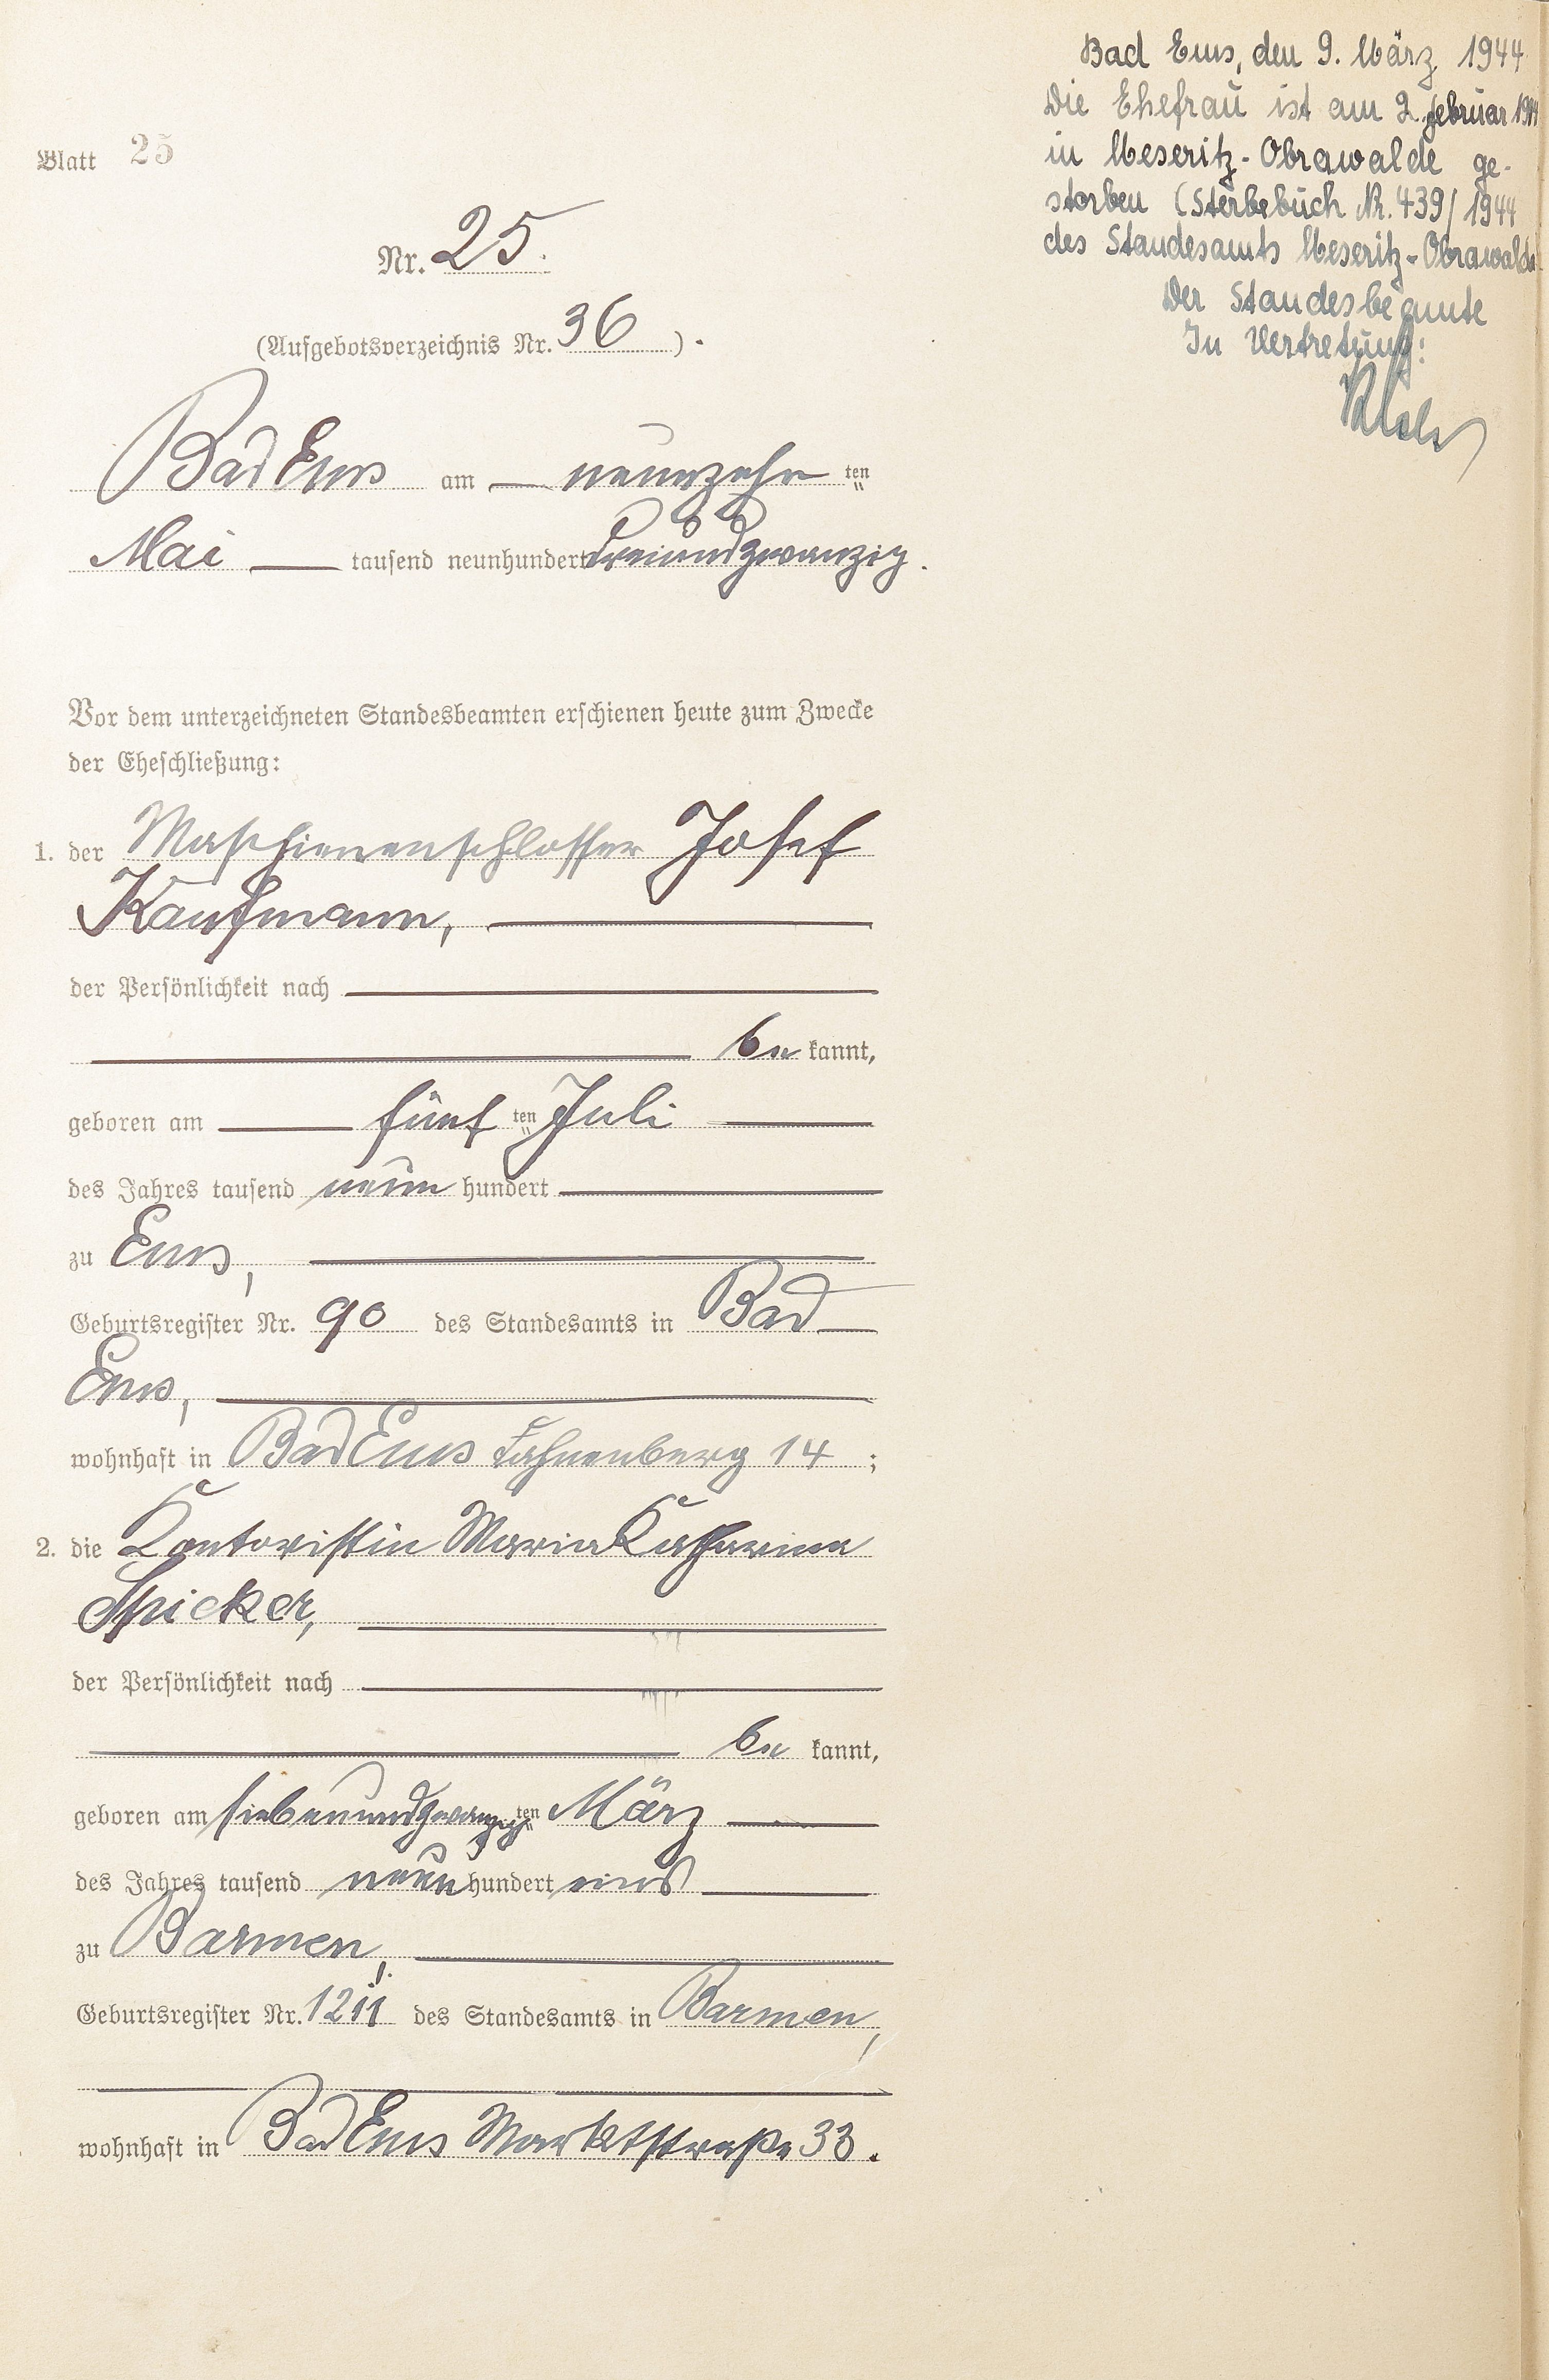 Blatt 25
Nr. 25.
(Aufgebotsverzeichnis Nr. 36).
Bad Ems am neunzehnten
Mai tausend neunhundert dreiundzwanzig.
Vor dem unterzeichneten Standesbeamten erschienen heute zum Zwecke
der Eheschließung:
1. der Maschienenschlosser Josef
Kaufmann,
der Persönlichkeit nach
be kannt,
geboren am fünften Juli
des Jahres tausend neun hundert
zu Ems,
Geburtsregister Nr. 90 des Standesamts in Bad
Ems,
wohnhaft in Bad Ems Fahnenberg 14;
2. die Kontoristin Maria Katharina
Spicker,
der Persönlichkeit nach
be kannt,
geboren am siebenundzwanzigten März
des Jahres tausend neun hundert eins
zu Barmen,
Geburtsregister Nr. 1211 des Standesamts in Barmen,
wohnhaft in Bad Ems Marktstraße 33.
Bad Ems, den 9. März 1944
Die Ehefrau ist am 2. Februar 1944
in Meseritz-Obrawalde ge-
storben (Sterbebuch Nr. 439/1944
des Standesamts Meseritz-Obrawalde
Der Standesbeamte
In Vertretung: